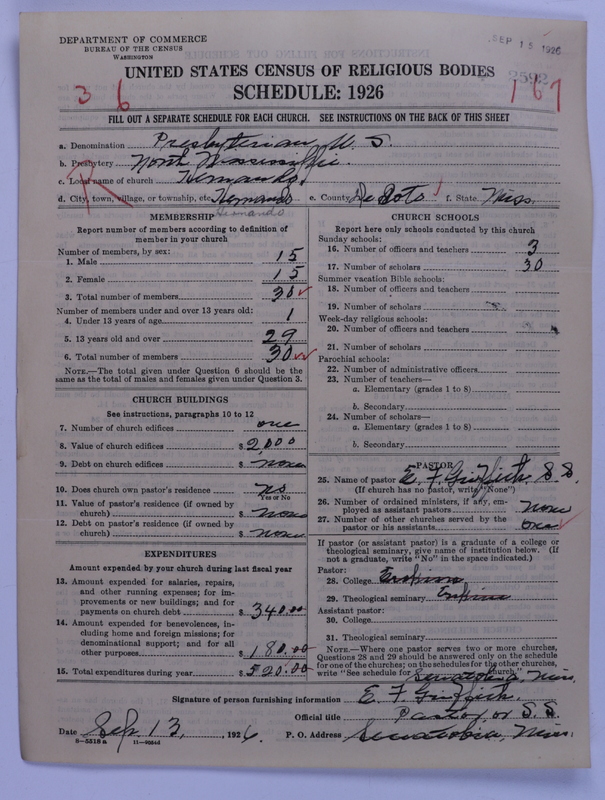 DEPARTMENT OF COMMERCE
BUREAU OF THE CENSUS
WASHINGTON
SEP 15 1926
2592
UNITED STATES CENSUS OF RELIGIOUS BODIES
SCHEDULE: 1926
3 6
167
FILL OUT A SEPARATE SCHEDULE FOR EACH CHURCH. SEE INSTRUCTIONS ON THE BACK OF THIS SHEET
R
a. Denomination Presbyterian U. S.
b. Presbytery North Mississippi
c. Local name of church Hernando
d. City, town, village, or township, etc. Hernando e. County De Soto f. State Miss.
Hernando
MEMBERSHIP
Report number of members according to definition of
member in your church
Number of members, by sex:
1. Male 15
2. Female 15
3. Total number of members 30
Number of members under and over 13 years old:
4. Under 13 years of age 1
5. 13 years old and over 29
6. Total number of members 30
NOTE.—The total given under Question 6 should be the
same as the total of males and females given under Question 3.
CHURCH BUILDINGS
See instructions, paragraphs 10 to 12
7. Number of church edifices one
8. Value of church edifices $ 2000
9. Debt on church edifices $ none
10. Does church own pastor's residence no
Yes or No
11. Value of pastor's residence (if owned by
church) $ none
12. Debt on pastor's residence (if owned by
church) $ none
EXPENDITURES
Amount expended by your church during last fiscal year
13. Amount expended for salaries, repairs,
and other running expenses; for im-
provements or new buildings; and for
payments on church debt $ 340.00
14. Amount expended for benevolences, in-
cluding home and foreign missions; for
denominational support; and for all
other purposes $ 180.00
15. Total expenditures during year $ 520.00
CHURCH SCHOOLS
Report here only schools conducted by this church
Sunday schools:
16. Number of officers and teachers 3
17. Number of scholars 30
Summer vacation Bible schools:
18. Number of officers and teachers
19. Number of scholars
Week-day religious schools:
20. Number of officers and teachers
21. Number of scholars
Parochial schools:
22. Number of administrative officers
23. Number of teachers—
a. Elementary (grades 1 to 8)
b. Secondary
24. Number of scholars—
a. Elementary (grades 1 to 8)
b. Secondary
PASTOR
25. Name of pastor E. F. Griffith, S. S.
(If church has no pastor, write "None")
26. Number of ordained ministers, if any, em-
ployed as assistant pastors None
27. Number of other churches served by the
pastor or his assistants one
If pastor (or assistant pastor) is a graduate of a college or
theological seminary, give name of institution below. (If
not a graduate, write "No" in the space indicated.)
Pastor:
28. College Erskine
29. Theological seminary Erskine
Assistant pastor:
30. College
31. Theological seminary
NOTE.—Where one pastor serves two or more churches,
Questions 28 and 29 should be answered only on the schedule
for one of the churches; on the schedules for the other churches,
write "See schedule for Senatobia, Miss. church."
Signature of person furnishing information E. F. Griffith.
Official title Pastor or S. S.
Date Sep. 13, 1926. P. O. Address Senatobia, Miss.
8—5518a 11—9664d